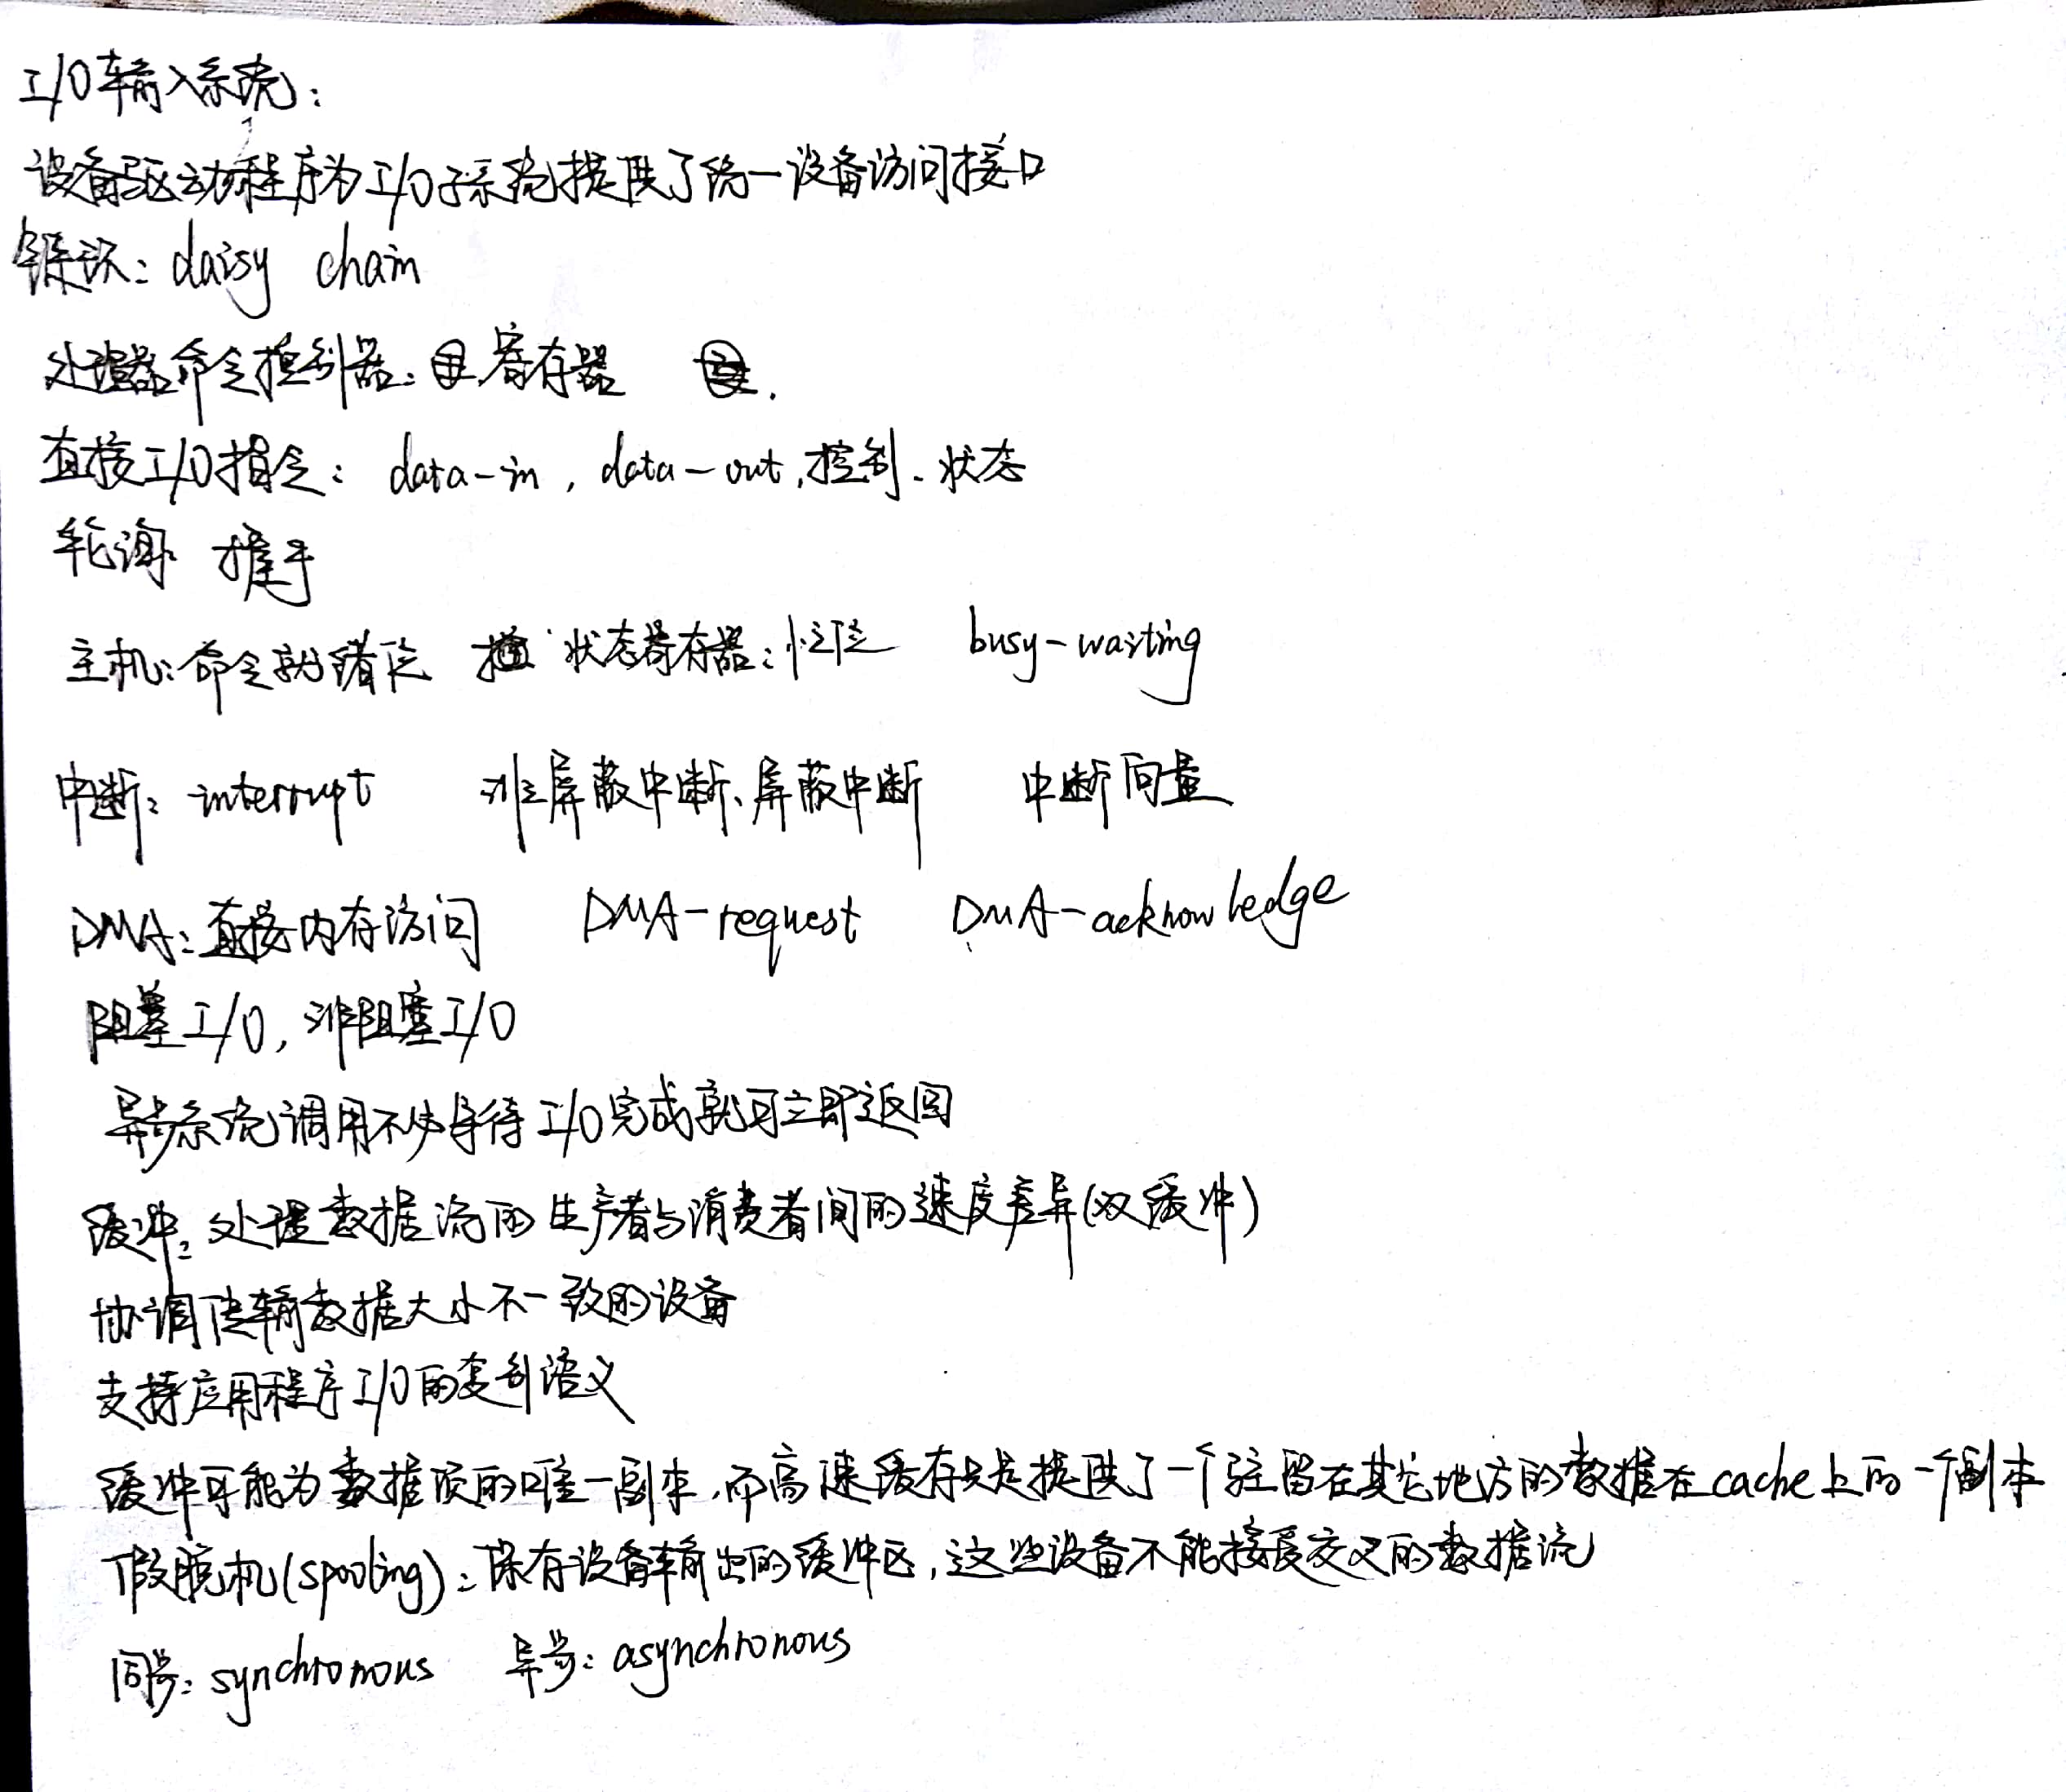 I/O输入系统:
设备驱动程序为I/O子系统提供了统一设备访问接口
daisy chain
处理器命令控制器: 寄存器
直接I/O指令: data-in, data-out, 控制、状态
轮询 握手
主机: 命令就绪位 状态寄存器: 忙位 busy-waiting
中断: interrupt 非屏蔽中断、屏蔽中断 中断向量
DMA: 直接内存访问 DMA-request DMA-acknowledge
阻塞I/O, 非阻塞I/O
异步系统调用不必等待I/O完成就可立即返回
缓冲: 处理数据流的生产者与消费者间的速度差异(双缓冲)
协调传输数据大小不一致的设备
支持应用程序I/O的复制语义
缓冲可能为数据项的唯一副本,而高速缓存只是提供了一个驻留在其它地方的数据在cache上的一个副本
假脱机(spooling): 保存设备输出的缓冲区,这些设备不能接受交叉的数据流
同步: synchronous 异步: asynchronous